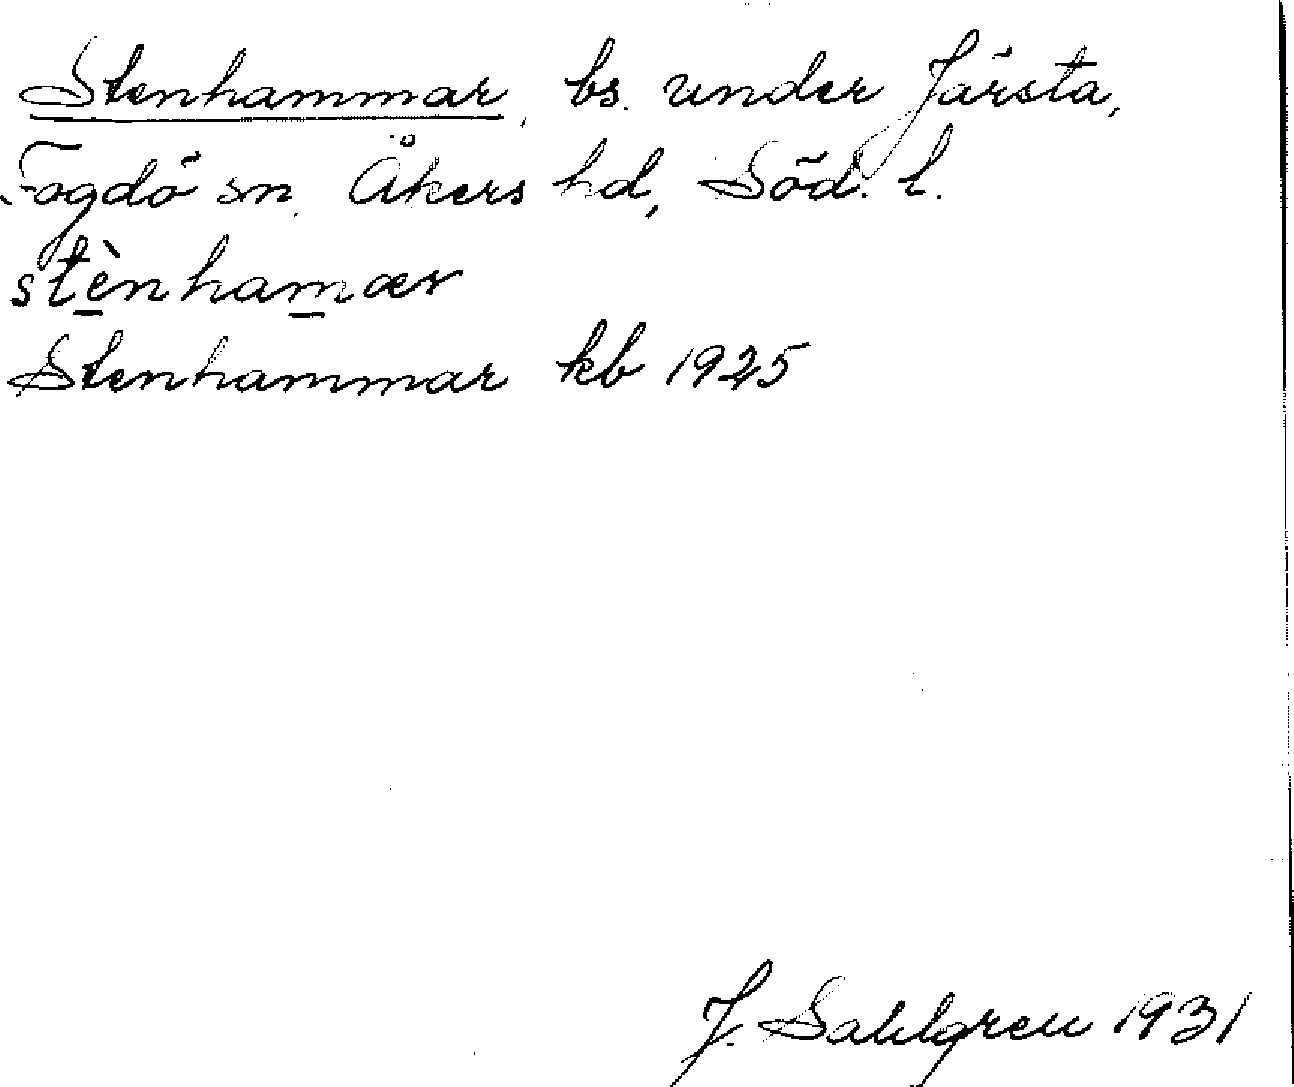 Stenhammar, bs. under Järsta,
Fogdö sn. Åkers hd, Söd. l.
stènhamær
Stenhammar kb 1925
J. Sahlgren 1931